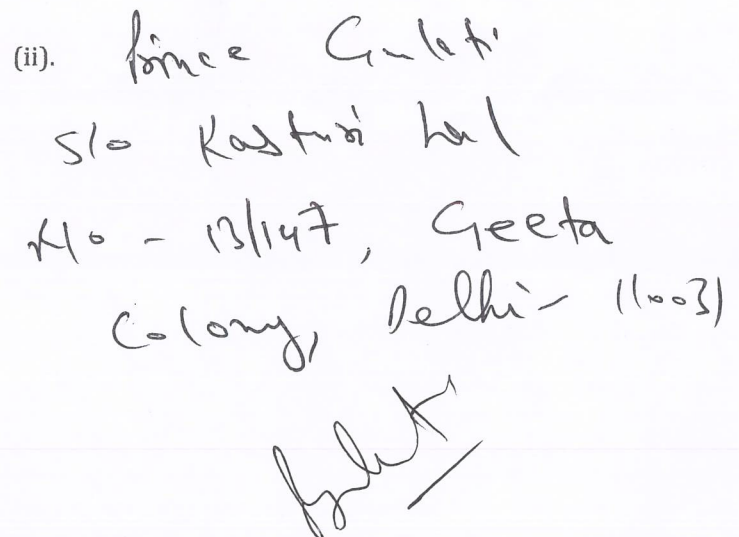 (ii). Prince Gulati
S/o Kasturi Lal
R/o - 13/147, Geeta
Colony, Delhi - 110031